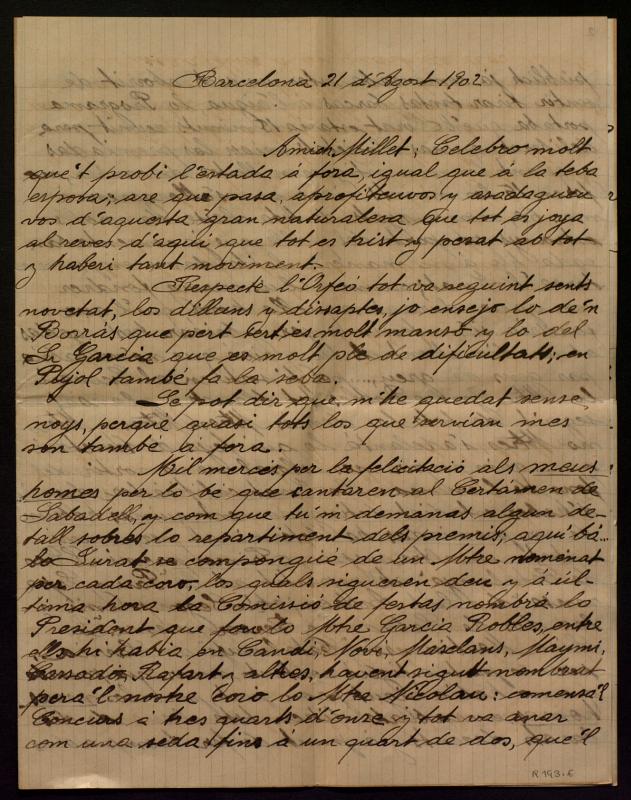 Barcelona 21 d'Agost 1902
Amich Millet: Celebro molt
que't probi l'estada á fora, igual que á la teba
esposa; are que pasa, aprofiteuvos y assadegueu
vos d'aquesta gran naturalesa que tot es joya
al reves d'aqui que tot es trist y pesat ab tot
y haberi tant moviment.
Respecte l'Orfeó tot va seguint sents
novetat, los dilluns y dissaptes, jo ensejo lo de'n
Borrás que pert cert es molt manso y lo del
Sr Garcia que es molt ple de dificultats; en
Pujol també fa la seba.
Se pot dir que m'he quedat sense
noys, perqué quasi tots los que servían mes
son també a fora.
Mil mercés per la felicitació als meus
homes per lo be que cantaren al Certámen de
Sabadell, y com que tu'm demanas algun de-
tall sobres lo repartiment dels premis; aquí bá...
lo Jurat se compongué de un Mtre nomenat
per cada coro, los quals sigueren deu y á úl-
tima hora la Comissió de festas nombrá lo
President que fou lo Mtre Garcia Robles, entre
ells hi habia en Candi, Novi, Masclans, Maymi,
Cassadó, Rafart y altres, havent sigutt nombrat
pera'l nostre coro lo Mtre Nicolau: comensá'l
Concurs á tres quarts d'onze y tot va anar
com una seda fins á un quart de dos, que'l
R 193.6